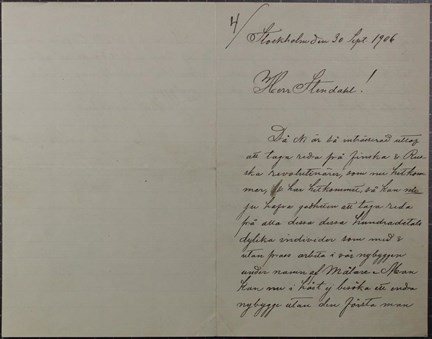 4/
Stockholm den 30 Sept 1906
Herr Stendahl!
Då Ni är så intresserad utaf
att taga reda på Finska & Rys-
ska revolutionärer, som nu hitkom
mer, & har hitkommit, så kan
ju hafva godheten att taga reda
på alla dessa dessa hundradetals
dylika individer som med &
utan pass arbeta i vår nybyggen
under namn af Målare. Man
kan nu i höst ej besöka ett enda
nybygge utan den första man